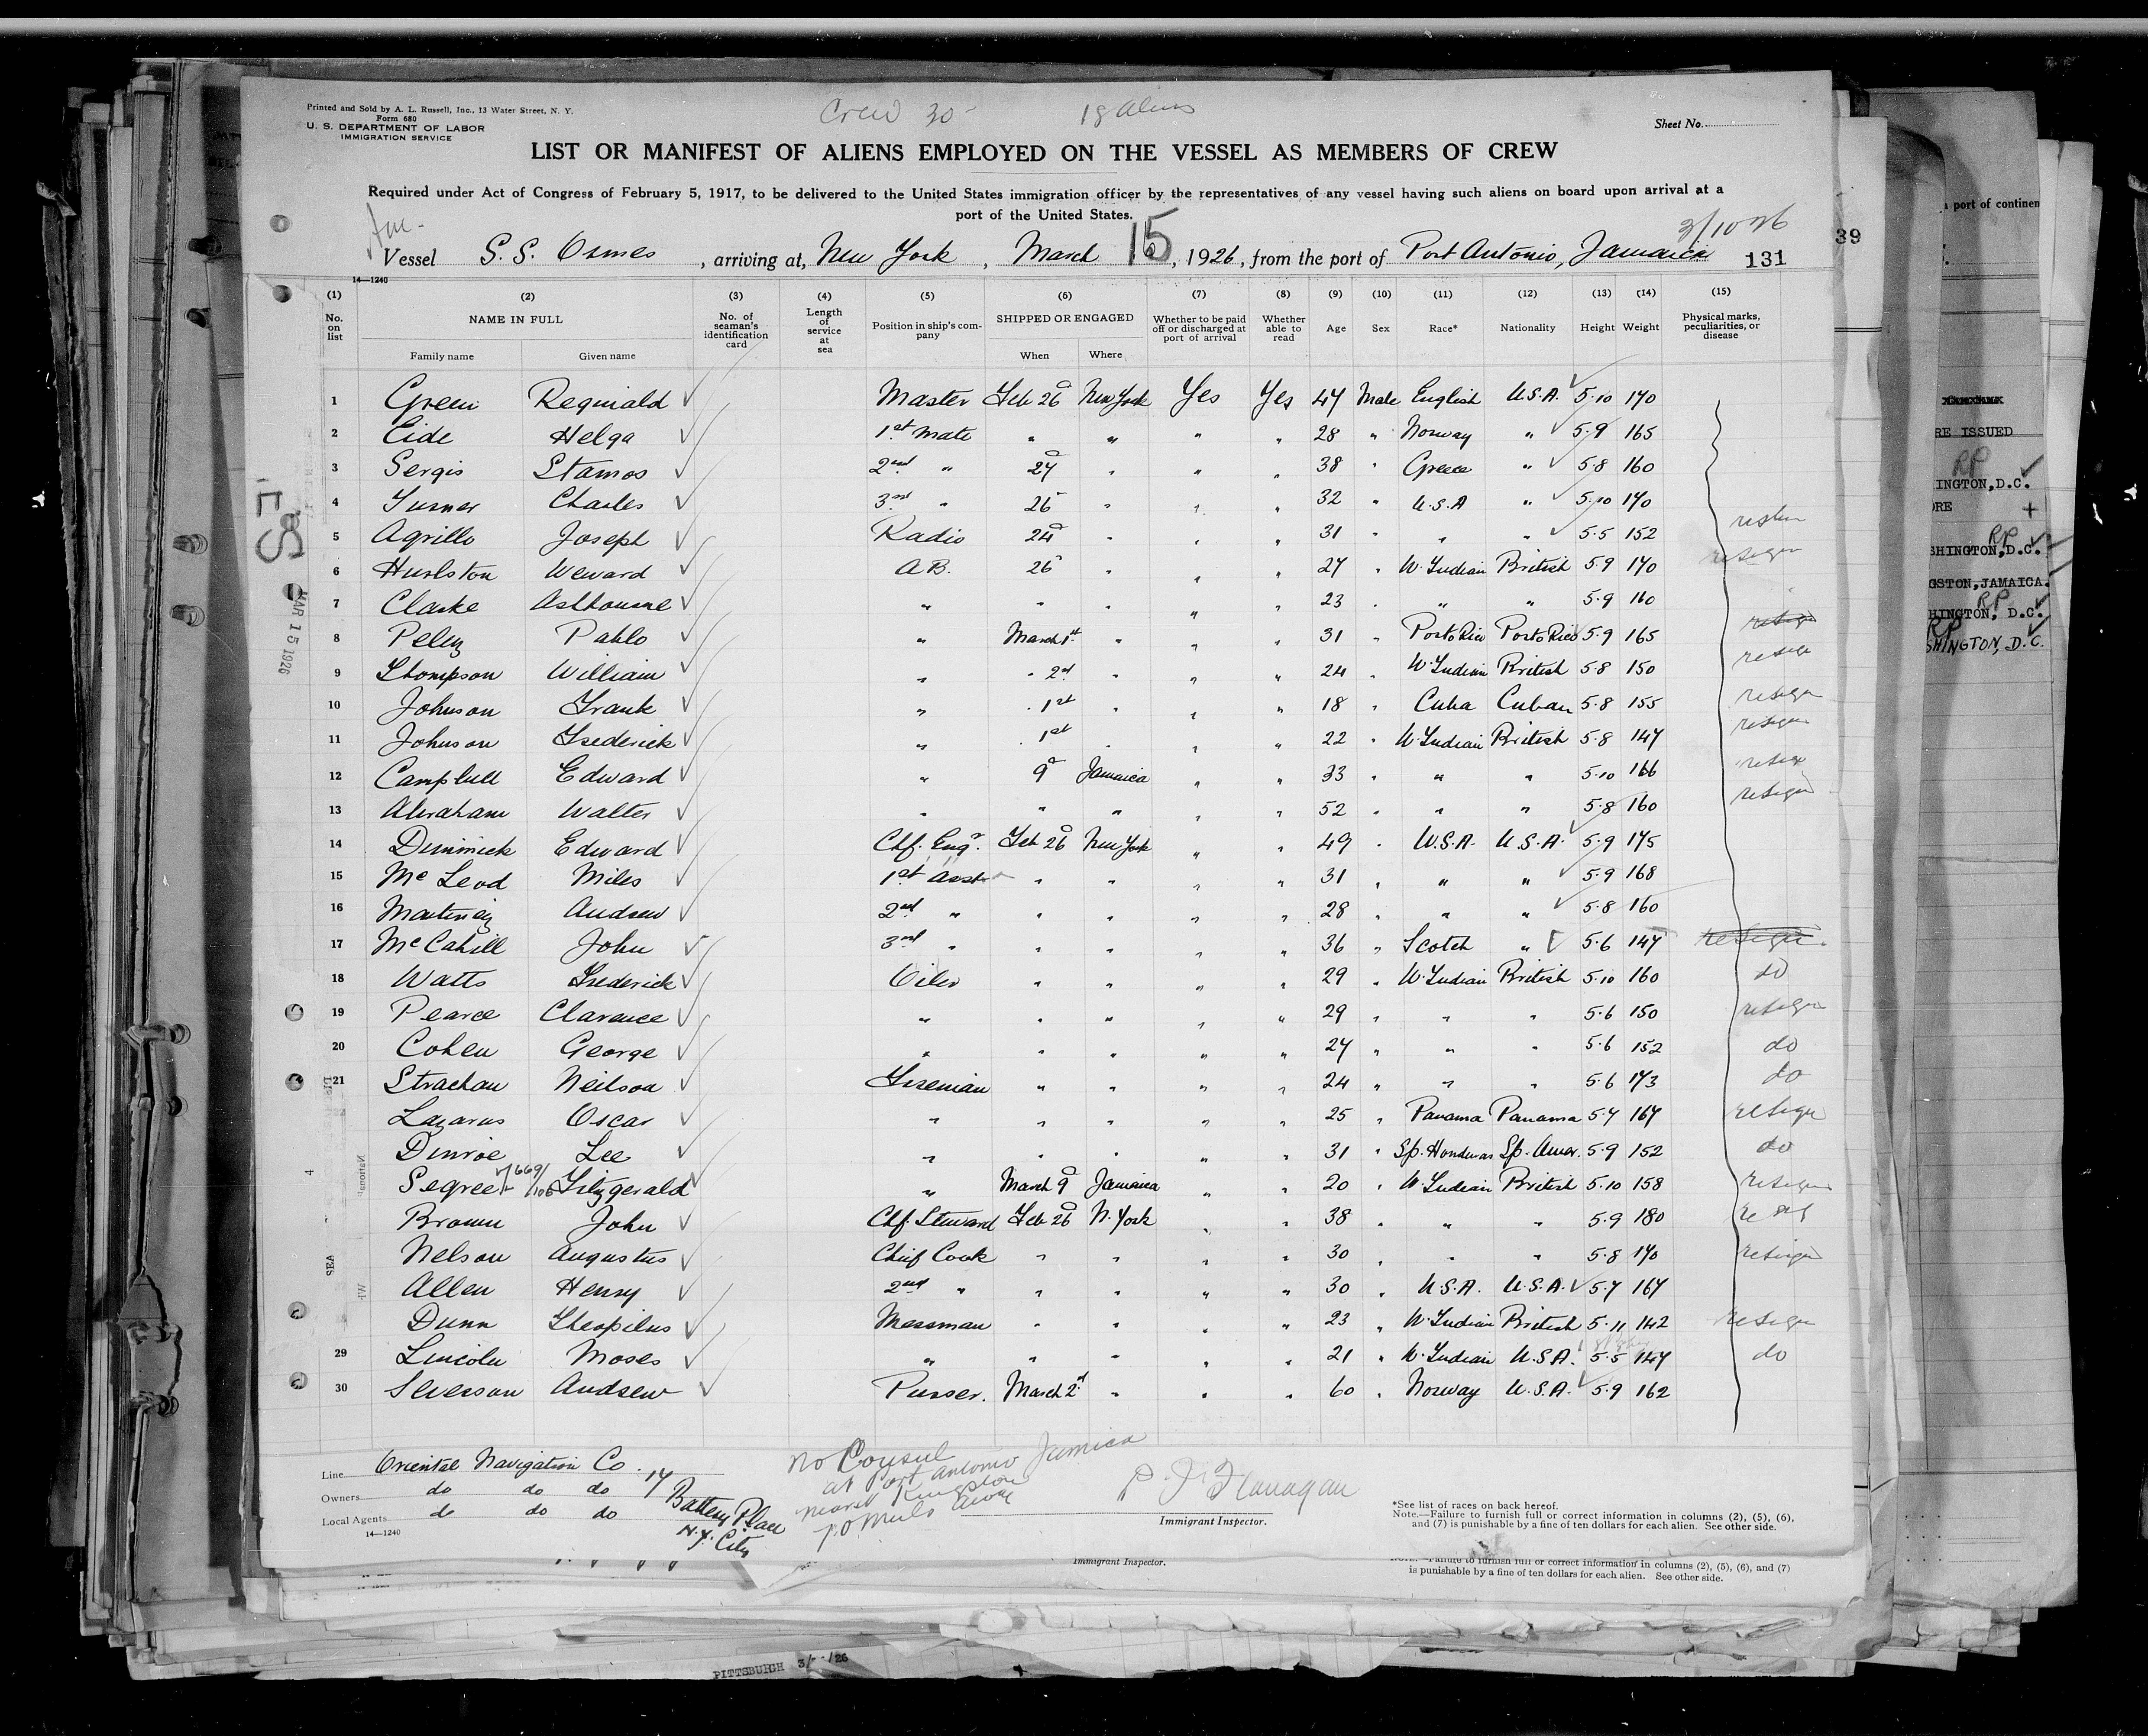 Printed and Sold by A. L. Russell, Inc., 13 Water Street, N. Y.
Form 680
U. S. DEPARTMENT OF LABOR
IMMIGRATION SERVICE
Crew 30- 18 aliens
Sheet No.
LIST OR MANIFEST OF ALIENS EMPLOYED ON THE VESSEL AS MEMBERS OF CREW
Required under Act of Congress of February 5, 1917, to be delivered to the United States immigration officer by the representatives of any vessel having such aliens on board upon arrival at a
port of the United States.
3/10 26
Vessel S.S. Osmes, arriving at, New York, March 15, 1926, from the port of Port Antonio, Jamaica 131
14—1240
(1) (2) (3) (4) (5) (6) (7) (8) (9) (10) (11) (12) (13) (14) (15)
No. on list NAME IN FULL Family name Given name No. of seaman's identification card Length of service at sea Position in ship's company SHIPPED OR ENGAGED When Where Whether to be paid off or discharged at port of arrival Whether able to read Age Sex Race* Nationality Height Weight Physical marks, peculiarities, or disease
1 Green Reginald Master Feb 26 New York Yes Yes 47 Male English U.S.A. 5.10 170
2 Eide Helga 1st Mate " " " " 28 " Norway " 5.9 165
3 Sergis Stamos 2nd " 27 " " " 38 " Greece " 5.8 160
4 Turner Charles 3rd " 26 " " " 32 " U.S.A " 5.10 170
5 Agrillo Joseph Radio 24 " " " 31 " " " 5.5 152
6 Hurlston Weward A B. 26 " " " 27 " W. Indian British 5.9 170 resign
7 Clarke Astbourne " " " " " 23 " " " 5.9 160
8 Pelez Pablo " March 1st " " " 31 " Porto Rico Porto Rico 5.9 165
9 Thompson William " " 2d " " " 24 " W. Indian British 5.8 150 resign
10 Johnson Frank " " 1st " " " 18 " Cuba Cuban 5.8 155 resign
11 Johnson Frederick " " 1st " " " 22 " W. Indian British 5.8 147 resign
12 Campbell Edward " 9 Jamaica " " 33 " " " 5.10 166 resign
13 Abraham Walter " " " " " 52 " " " 5.8 160 resign
14 Dimmick Edward Chf. Engr. Feb 26 New York " " 49 " U.S.A. U.S.A. 5.9 175
15 McLeod Miles 1st Asst " " " " 31 " " " 5.9 168
16 Martinez Andrew 2nd " " " " " 28 " " " 5.8 160
17 McCahill John 3rd " " " " " 36 " Scotch " 5.6 147 resign
18 Watts Frederick Oiler " " " " 29 " W. Indian British 5.10 160 do
19 Pearce Clarence " " " " " 29 " " " 5.6 150 resign
20 Cohen George " " " " " 27 " " " 5.6 152 do
21 Strachan Neilson Fireman " " " " 24 " " " 5.6 173 do
Lazarus Oscar " " " " " 25 " Panama Panama 5.7 167 resign
Dinroe Lee " " " " " 31 " Sp. Honduras Sp. Amer. 5.9 152 do
Segree Fitzgerald " March 9 Jamaica " " 20 " W. Indian British 5.10 158 resign
Brown John Chf. Steward Feb 26 N. York " " 38 " " " 5.9 180
Nelson Augustus Chief Cook " " " " 30 " " " 5.8 170 resign
Allen Henry 2nd " " " " " 30 " U.S.A. U.S.A. 5.7 167
Dunn Theopilus Messman " " " " 23 " W. Indian British 5.11 142 resign
29 Lincoln Moses " " " " " 21 " W. Indian U.S.A. 5.5 147 do
30 Severson Andrew Purser. March 2d " " " 60 " Norway U.S.A. 5.9 162
MAR 15 1926
SEA
Line Oriental Navigation Co.
Owners do do do 17 Battery Place
Local Agents do do do N.Y. City
14—1240
No Consul
at Port Antonio Jamica
nearest Kingston
70 Miles away
P J Flanagan
Immigrant Inspector.
*See list of races on back hereof.
Note.—Failure to furnish full or correct information in columns (2), (5), (6),
and (7) is punishable by a fine of ten dollars for each alien. See other side.
Immigrant Inspector.
Failure to furnish full or correct information in columns (2), (5), (6), and (7)
is punishable by a fine of ten dollars for each alien. See other side.
PITTSBURGH
39
port of continen
RE ISSUED
RP
INGTON, D.C.
ORE +
RP
SHINGTON, D.C.
GSTON, JAMAICA.
RP
HINGTON, D.C.
RP
SHINGTON, D.C.